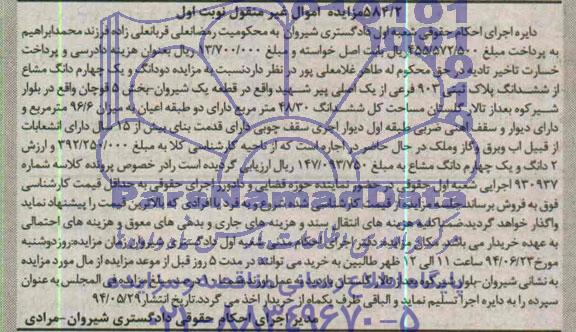 ۵۸۴/۲مزایده اموال غیر منقول نوبت اول
دایره اجرای احکام حقوقی شعبه اول دادگستری شیروان به محکومیت رمضانعلی قربانعلی زاده فرزند محمدابراهیم
به پرداخت مبلغ ۴۵۵/۵۷۲/۵۰۰ ریال بابت اصل خواسته و مبلغ ۹۳/۷۰۰/۰۰۰ ریال بعنوان هزینه دادرسی و پرداخت
خسارت تاخیر تادیه در حق محکوم له طاهر غلامعلی پور در نظر داردنسبت به مزایده دودانگ و یک چهارم دانگ مشاع
از ششدانگ پلاک ثبتی ۹۰۲ فرعی از یک اصلی پیر شهید واقع در قطعه یک شیروان-بخش ۵ قوچان واقع در بلوار
شیرکوه بعداز تالار گلستان مساحت کل ششدانگ ۴۸/۳۰ متر مربع دارای دو طبقه اعیان به میزان ۹۶/۶ مترمربع و
دارای دیوار و سقف آهنی ضربی طبقه اول دیوار آجری سقف چوبی دارای قدمت بنای بیش از ۱۵ سال دارای انشعابات
از قبیل آب وبرق و گاز وملک در حال حاضر در اجاره است که از ناحیه کارشناسی کلا به مبلغ ۳۹۲/۲۵۰/۰۰۰ و ارزش
۲ دانگ و یک چهارم دانگ مشاع به مبلغ ۱۴۷/۰۹۳/۷۵۰ ریال ارزیابی گردیده است رادر خصوص پرونده کلاسه شماره
۹۳۰۹۳۷ اجرایی شعبه اول حقوقی در حضور نماینده حوزه قضایی و دادورز اجرای حقوقی به حداقل قیمت کارشناسی
فوق به فروش برساند جلسه مزایده از قیمت کارشناسی شده شروع و به فرد یا افرادی که بالاترین قیمت را پیشنهاد نماید
واگذار خواهد گردید.ضمنا کلیه هزینه های انتقال سند و هزینه های جاری و بدهی های معوق و هزینه های احتمالی
به عهده خریدار می باشد. مکان مزایده:دفتر اجرای احکام مدنی شعبه اول دادگستری شیروان زمان مزایده:روزدوشنبه
مورخ۹۴/۰۶/۲۳ ساعت ۱۱ الی ۱۲ ظهر طالبین به خرید می توانند در مدت ۵ روز قبل از موعد مزایده از مال مورد مزایده
به نشانی شیروان-بلوار شیرکوه بعداز تالار گلستان بازدید بعمل آورند ضمنا ده درصد مبلغ مزایده فی المجلس به عنوان
سپرده را به دایره اجرا تسلیم نماید و الباقی ظرف یکماه از خریدار اخذ می گردد.تاریخ انتشار:۹۴/۰۵/۲۹
مدیر اجرای احکام حقوقی دادگستری شیروان-مرادی
پایگاه اطلاع رسانی مناقصه و مزایده
۰۲۱-۸۸۳۴۹۶۷۰-۵